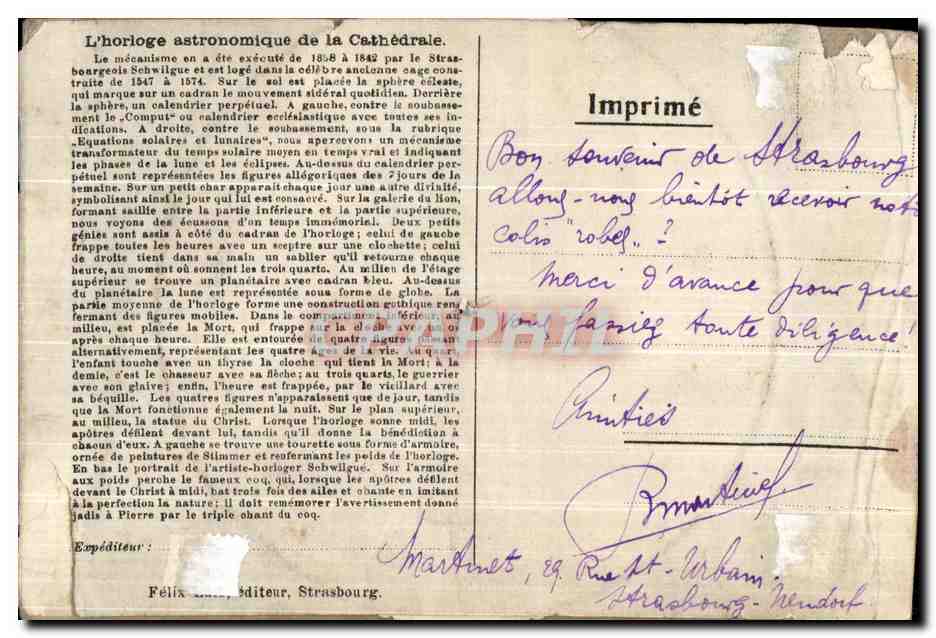 L'horloge astronomique de la Cathédrale.
Le mécanisme en a été exécuté de 1838 à 1842 par le Stras-
bourgeois Schwilgue et est logé dans la célèbre ancienne cage cons-
truite de 1547 à 1574. Sur le sol est placée la sphère céleste,
qui marque sur un cadran le mouvement sidéral quotidien. Derrière
la sphère, un calendrier perpétuel. A gauche, contre le soubasse-
ment le „Comput" ou calendrier ecclésiastique avec toutes ses in-
dications. A droite, contre le soubassement, sous la rubrique
„Equations solaires et lunaires", nous apercevons un mécanisme
transformateur du temps solaire moyen en temps vrai et indiquant
les phases de la lune et les éclipses. Au-dessus du calendrier per-
pétuel sont représentées les figures allégoriques des 7 jours de la
semaine. Sur un petit char apparait chaque jour une autre divinité,
symbolisant ainsi le jour qui lui est consacré. Sur la galerie du lion,
formant saillie entre la partie inférieure et la partie supérieure,
nous voyons des écussons d'un temps immémorial. Deux petits
génies sont assis à côté du cadran de l'horloge; celui de gauche
frappe toutes les heures avec un sceptre sur une clochette; celui
de droite tient dans sa main un sablier qu'il retourne chaque
heure, au moment où sonnent les trois quarts. Au milieu de l'étage
supérieur se trouve un planétaire avec cadran bleu. Au-dessus
du planétaire la lune est représentée sous forme de globe. La
partie moyenne de l'horloge forme une construction gothique ren-
fermant des figures mobiles. Dans le compartiment inférieur, au
milieu, est placée la Mort, qui frappe sur la cloche avec un os
après chaque heure. Elle est entourée de quatre figures passant
alternativement, représentant les quatre âges de la vie. Au quart
l'enfant touche avec un thyrse la cloche qui tient la Mort; à la
demie, c'est le chasseur avec sa flèche; au trois quarts, le guerrier
avec son glaive; enfin, l'heure est frappée, par le vieillard avec
sa béquille. Les quatres figures n'apparaissent que de jour, tandis
que la Mort fonctionne également la nuit. Sur le plan supérieur,
au milieu, la statue du Christ. Lorsque l'horloge sonne midi, les
apôtres défilent devant lui, tandis qu'il donne la bénédiction à
chacun d'eux. A gauche se trouve une tourette sous forme d'armoire,
ornée de peintures de Stimmer et renfermant les poids de l'horloge.
En bas le portrait de l'artiste-horloger Schwilgué. Sur l'armoire
aux poids perche le fameux coq, qui, lorsque les apôtres défilent
devant le Christ à midi, bat trois fois des ailes et chante en imitant
à la perfection la nature; il doit remémorer l'avertissement donné
jadis à Pierre par le triple chant du coq.
Expéditeur:
Félix éditeur, Strasbourg.
Imprimé
Bon souvenir de Strasbourg
allons-nous bientôt recevoir notre
colis "robes" ?
Merci d'avance pour que
vous fassiez toute diligence!
Amitiés
RMartinet
Martinet, 29. Rue St-Urbain.
Strasbourg-Neudorf.
CPAPHIL